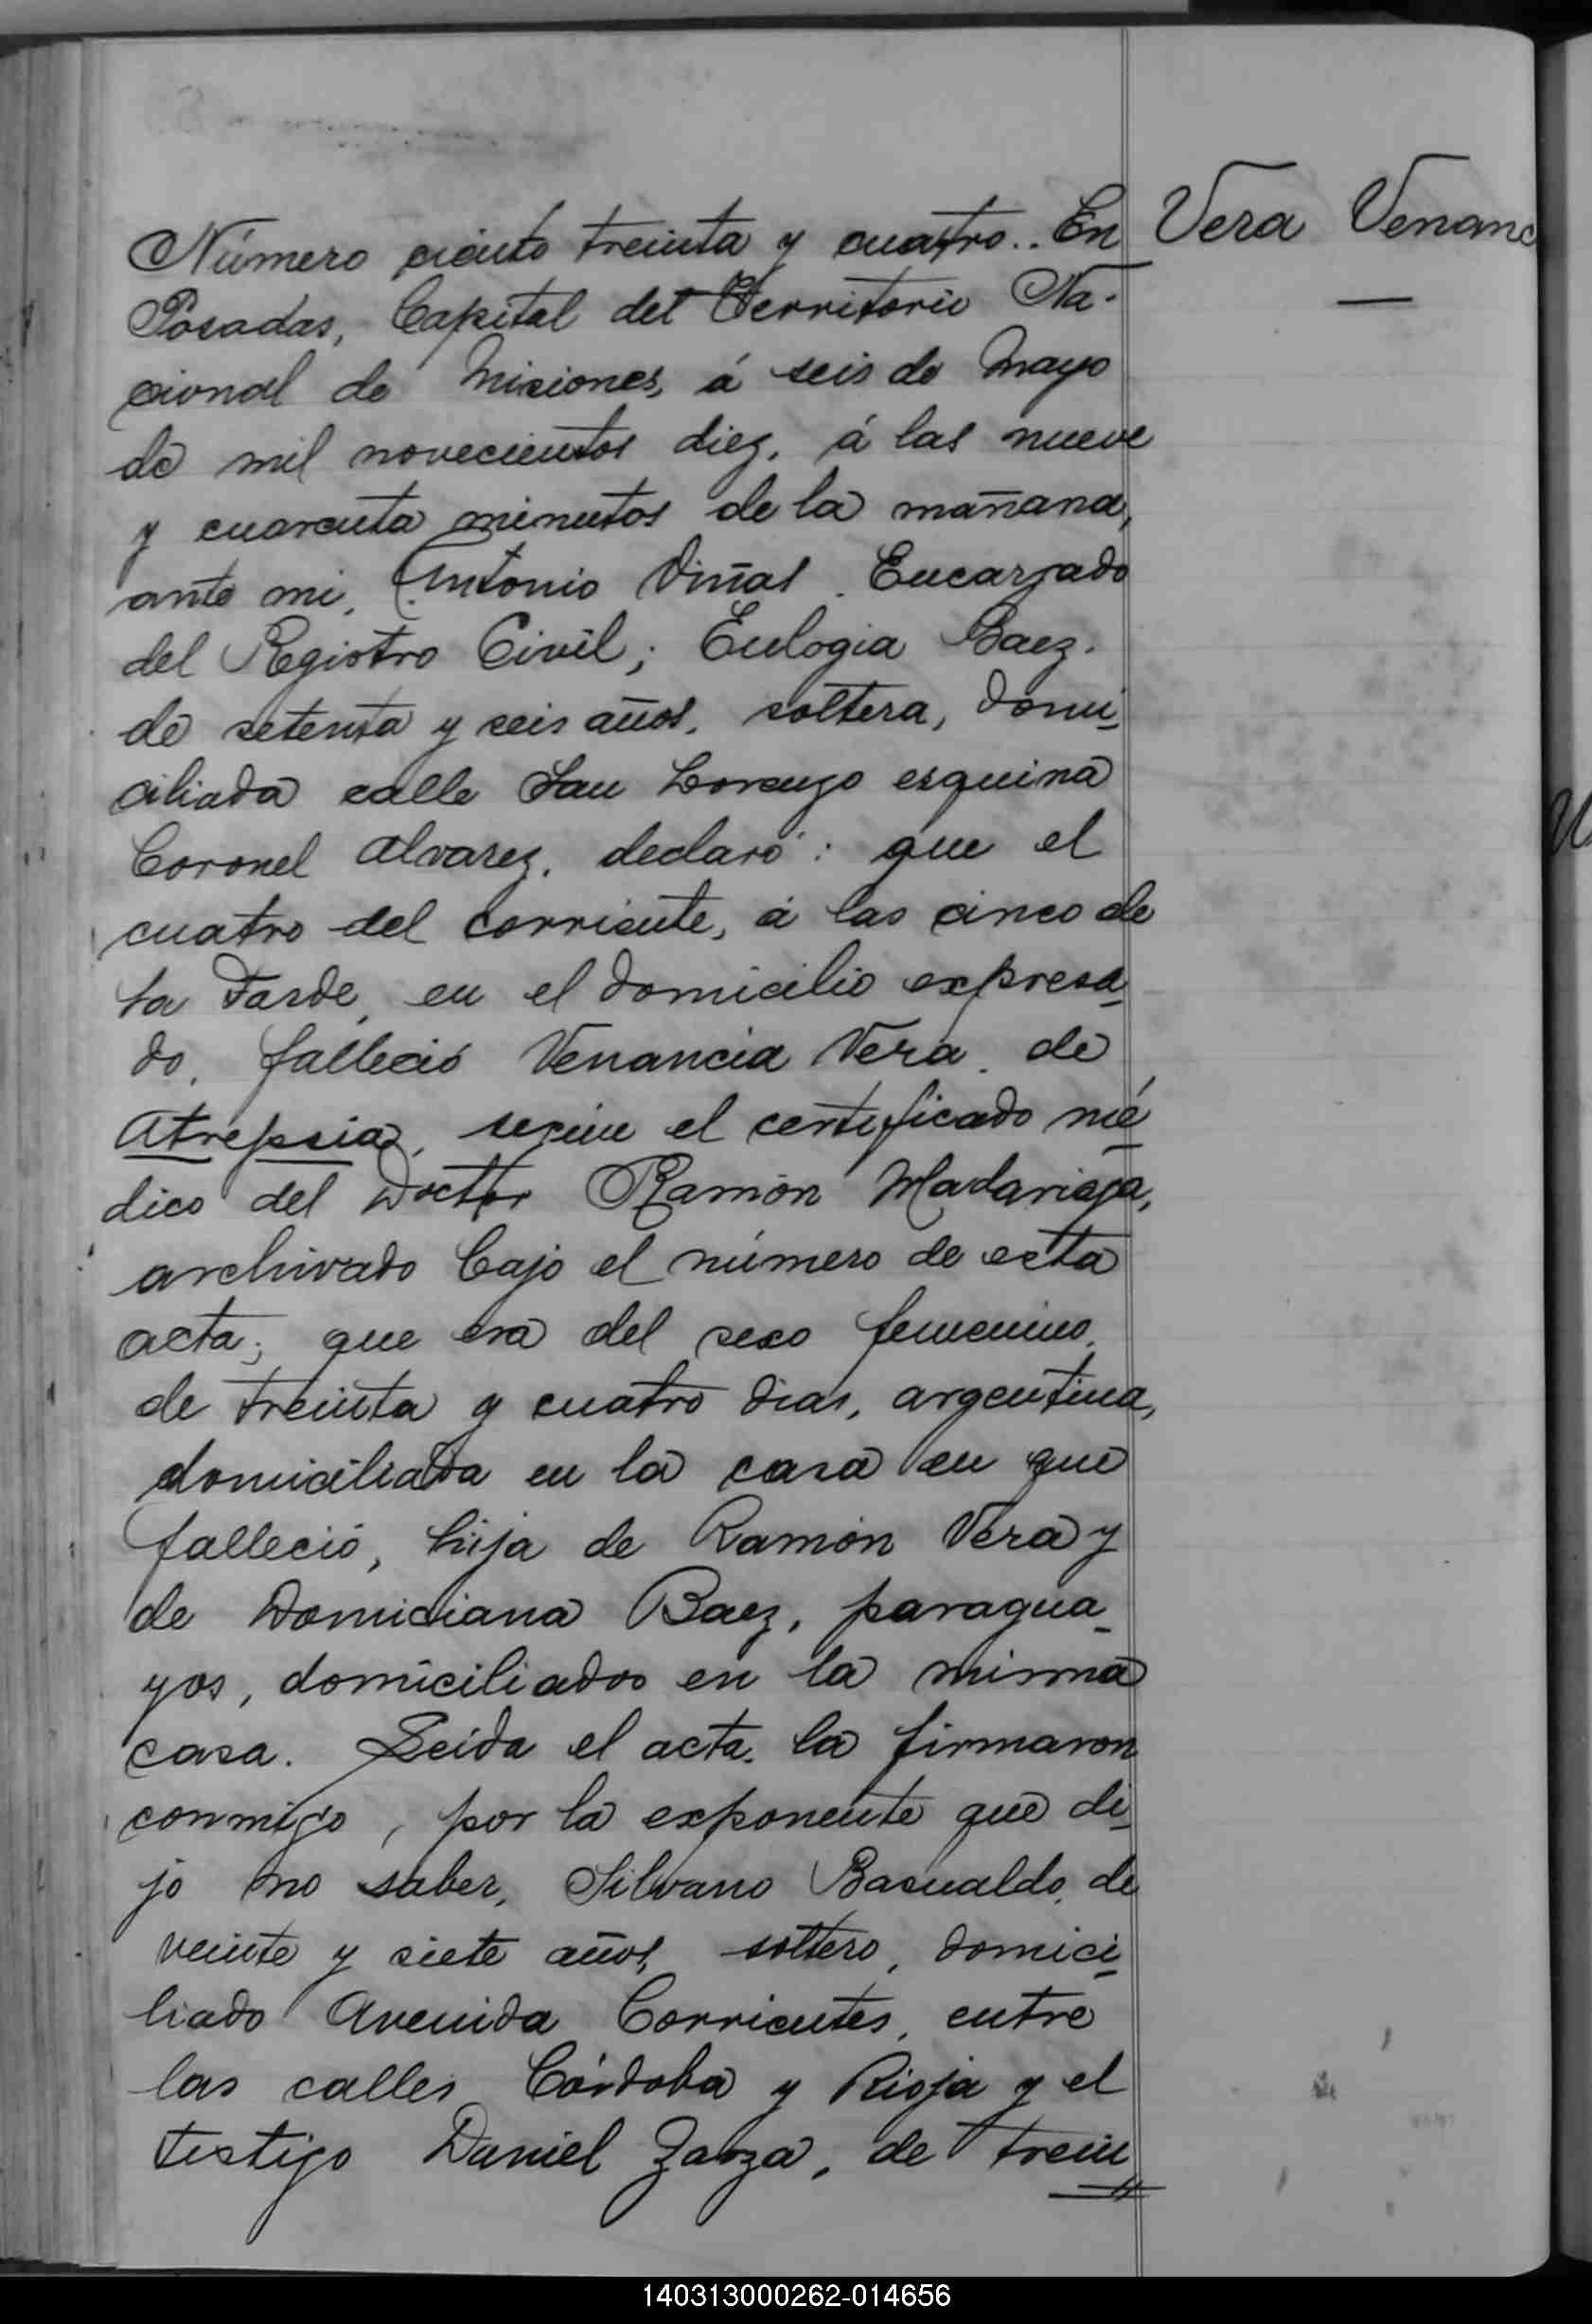 Número ciento treinta y cuatro.. En
Posadas, Capital del Territorio Na-
cional de Misiones, á seis de Mayo
de mil novecientos diez, á las nueve
y cuarenta minutos de la mañana,
ante mi, Antonio Viñas, Encargado
del Registro Civil; Eulogia Baez,
de setenta y seis años, soltera, domi-
ciliada calle San Lorenzo esquina
Coronel Alvarez, declaró: que el
cuatro del corriente, á las cinco de
la tarde, en el domicilio expresa-
do, falleció Venancia Vera, de
Atrepsia, segun el certificado mé-
dico del Doctor Ramón Madariaga,
archivado bajo el número de esta
acta; que era del sexo femenino,
de treinta y cuatro dias, argentina,
domiciliada en la casa en que
falleció, hija de Ramón Vera y
de Domiciana Baez, paragua-
yos, domiciliados en la misma
casa. Leida el acta, la firmaron
conmigo, por la exponente que di-
jo no saber, Silvano Basualdo, de
veinte y siete años, soltero, domici-
liado Avenida Corrientes, entre
las calles Córdoba y Rioja y el
testigo Daniel Zarza, de trein
Vera Venanc
140313000262-014656